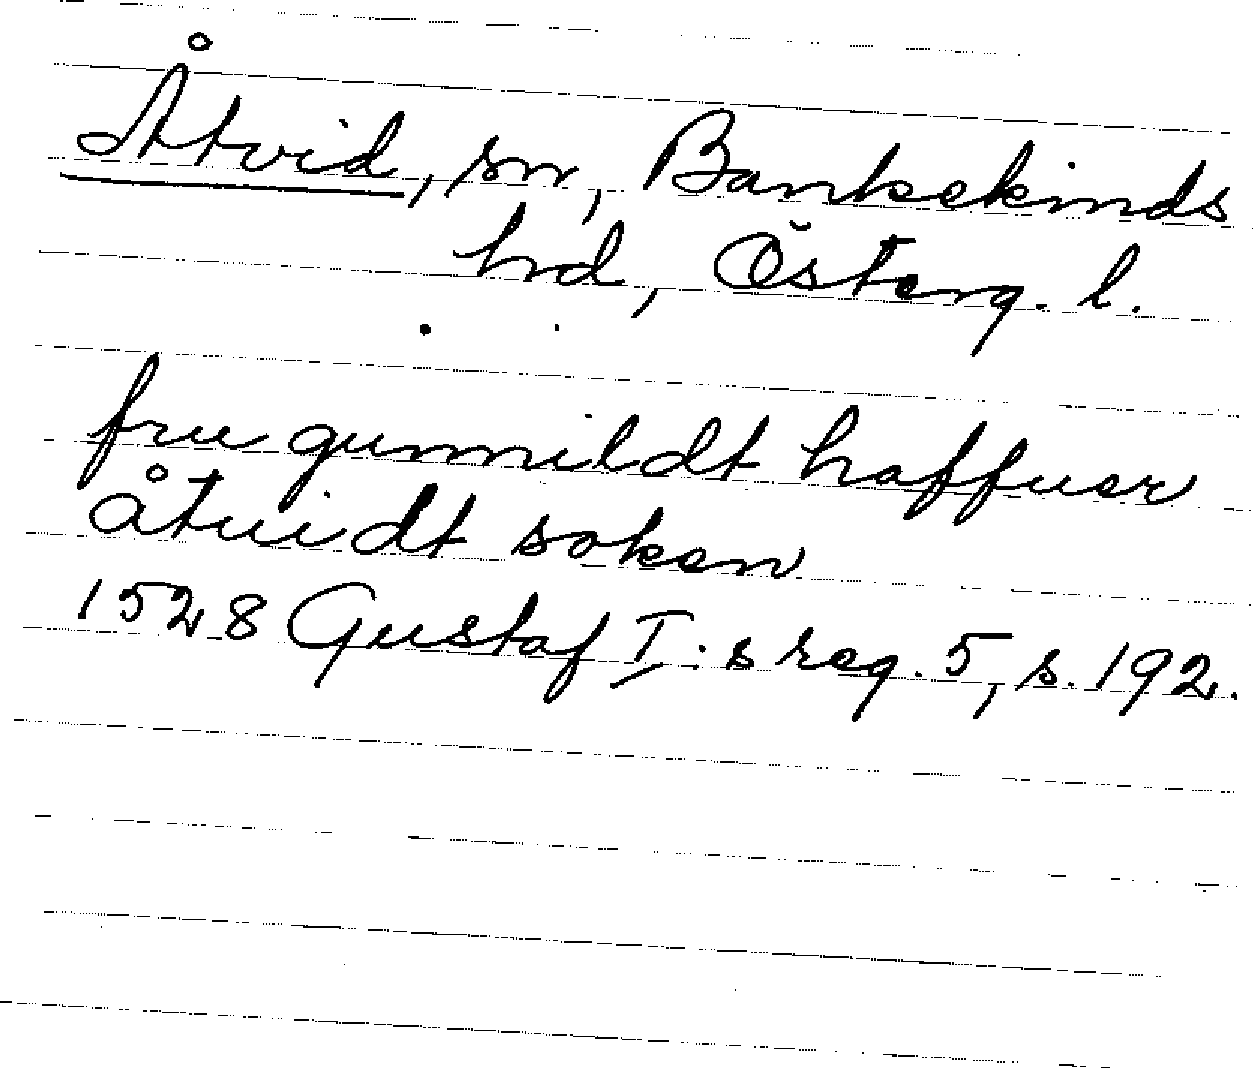 Åtvid, sn, Bankekinds
hd, Österg. l.
fru gunnildt haffuer
åtuidt soken
1528 Gustaf I:s reg. 5, s. 192.